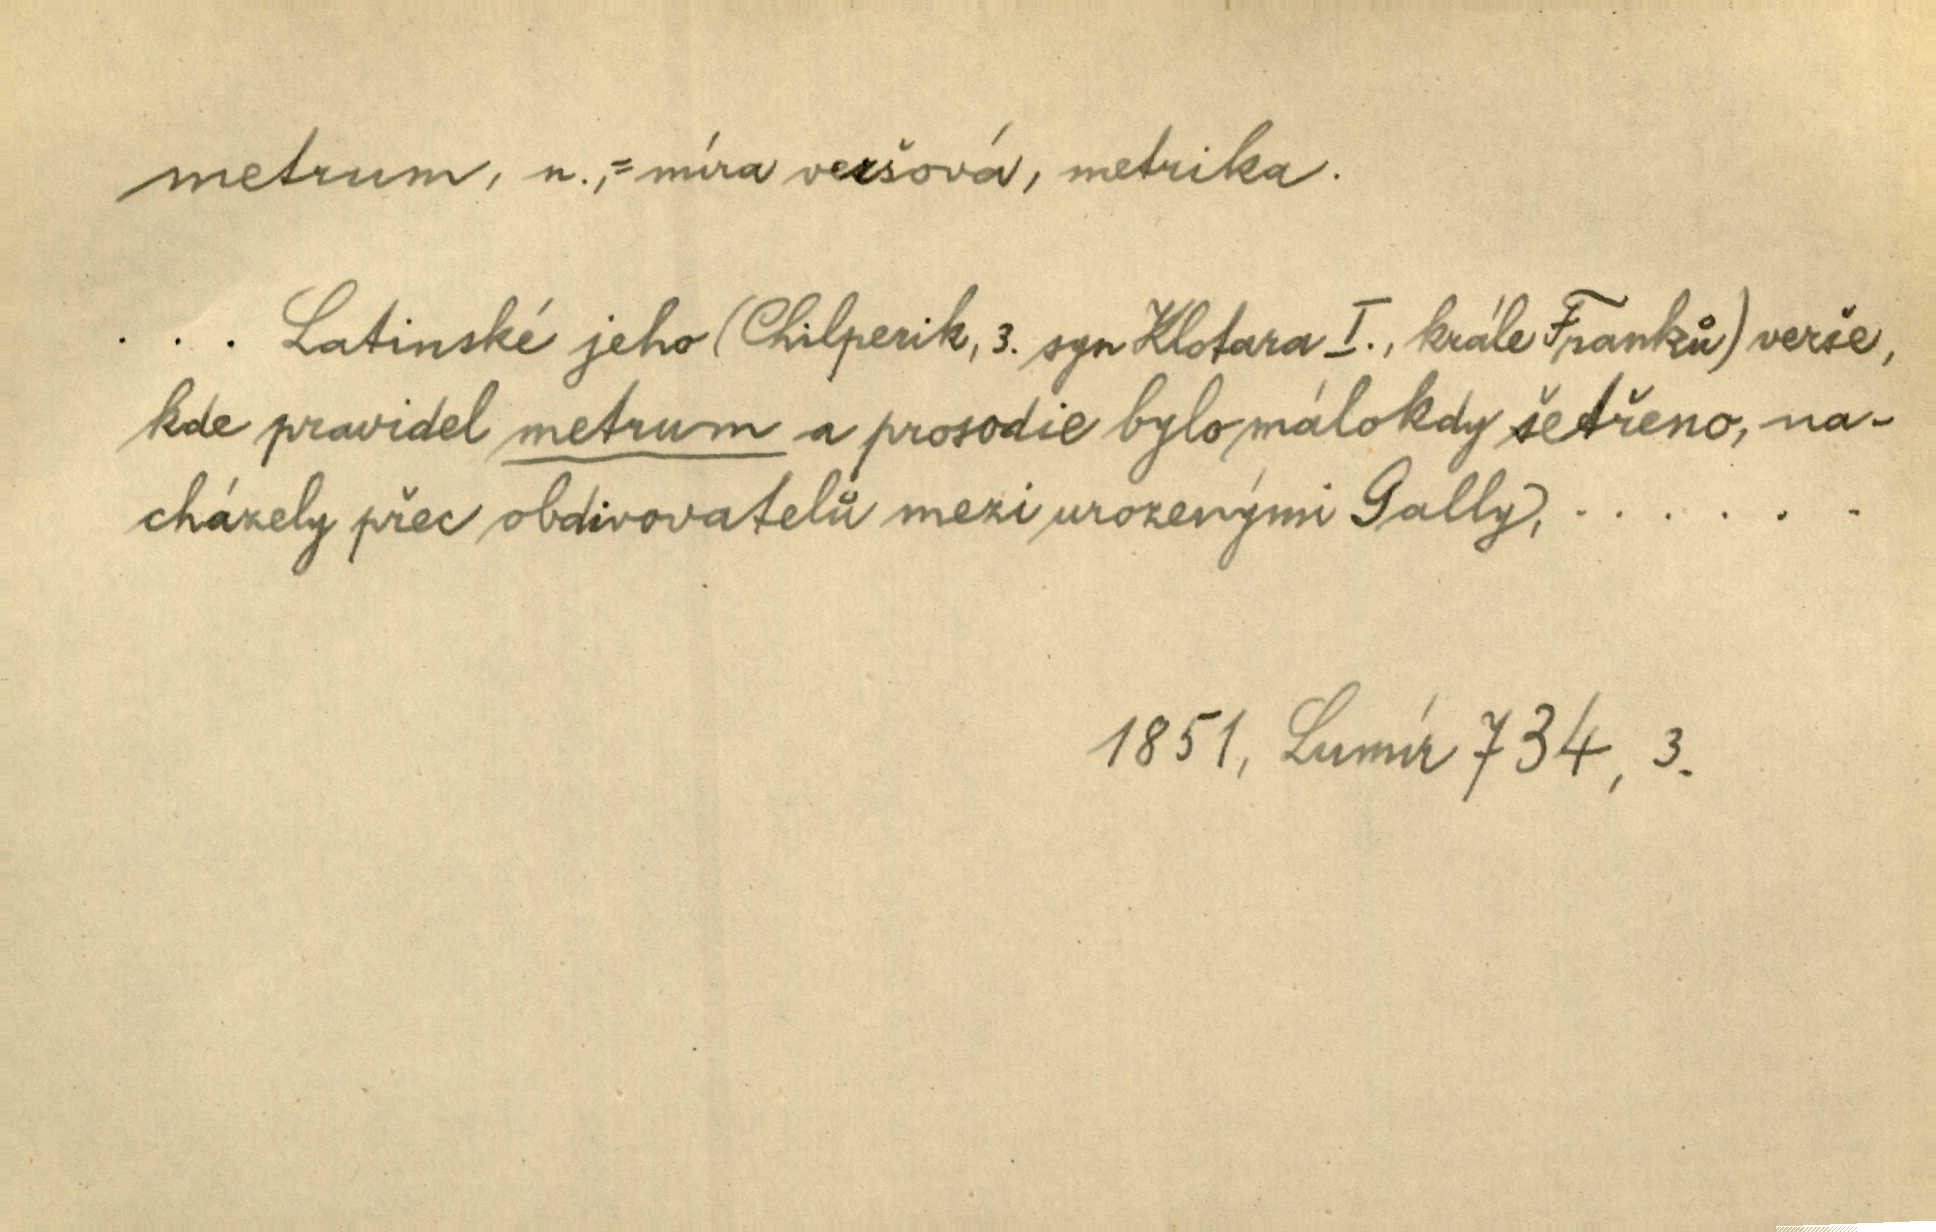 metrum, n., = míra veršová, metrika.
. . . Latinské jeho (Chilperik, 3. syn Klotara I., krále Franků) verše,
kde pravidel metrum a prosodie bylo málokdy šetřeno, na-
cházely přec obdivovatelů mezi urozenými Gally, . . . . . . .
1851, Lumír 734, 3.